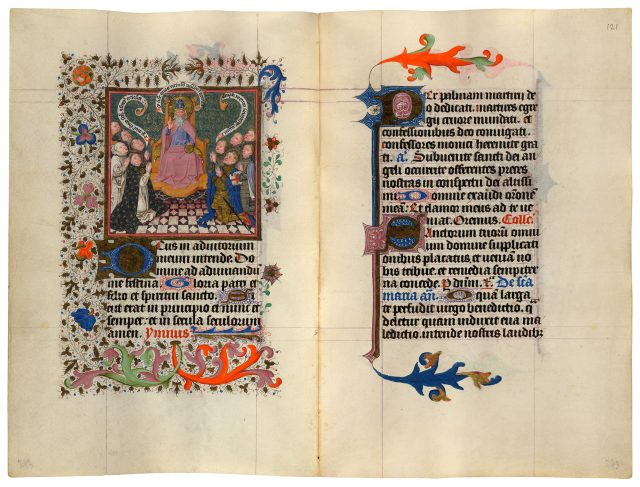 eus in adiutorium
meum intende. Do
mine ad adiuuandū
me festina. Gloria patri et
filio et spiritui sancto. S
icut erat in principio et nunc et
semper. et in secula seculorum
amen. Ymnus
121
Per palmam martirii de
o dedicati. martires egre
gii cruore mundati. et
confessionibus deo coniugati.
confessores monici heremite gra
ti. a. Subuenite sancti dei an
geli occurrite offerentes preces
nostras in conspectu dei altissi
mi. Domine exaudi oronē
meā. Et clamor meus ad te ue
niat. Oremus. Collec
Sanctorum tuorū omni
um domine supplicati
onibus placatus. et ueniā no
bis tribue. et remedia sempiter
na concede. P dnm. De sca
maria añ. qua larga
te perfudit uirgo benedictio. q
deletur quam induxit eua ma
ledictio. intende nostris laudibz